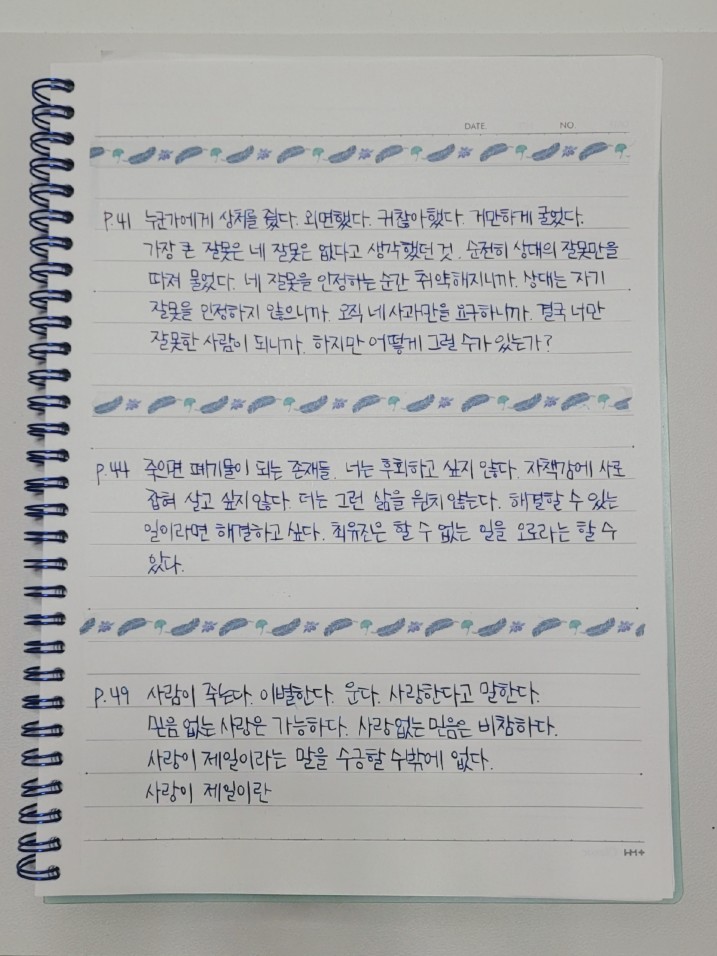 DATE. NO.
P.41 누군가에게 상처를 줬다. 외면했다. 귀찮아했다. 거만하게 굴었다.
가장 큰 잘못은 네 잘못은 없다고 생각했던 것. 순전히 상대의 잘못만을
따져 물었다. 네 잘못을 인정하는 순간 취약해지니까. 상대는 자기
잘못을 인정하지 않으니까. 오직 네 사과만을 요구하니까. 결국 너만
잘못한 사람이 되니까. 하지만 어떻게 그럴 수가 있는가?
P.44 죽으면 폐기물이 되는 존재들. 너는 후회하고 싶지 않다. 자책감에 사로
잡혀 살고 싶지 않다. 더는 그런 삶을 원치 않는다. 해결할 수 있는
일이라면 해결하고 싶다. 최유조은 할 수 없는 일을 오로라는 할 수
있다.
P.49 사람이 죽는다. 이별한다. 운다. 사랑한다고 말한다.
믿음 없는 사랑은 가능하다. 사랑 없는 믿음은 비참하다.
사랑이 제일이라는 말을 수긍할 수밖에 없다.
사랑이 제일이란